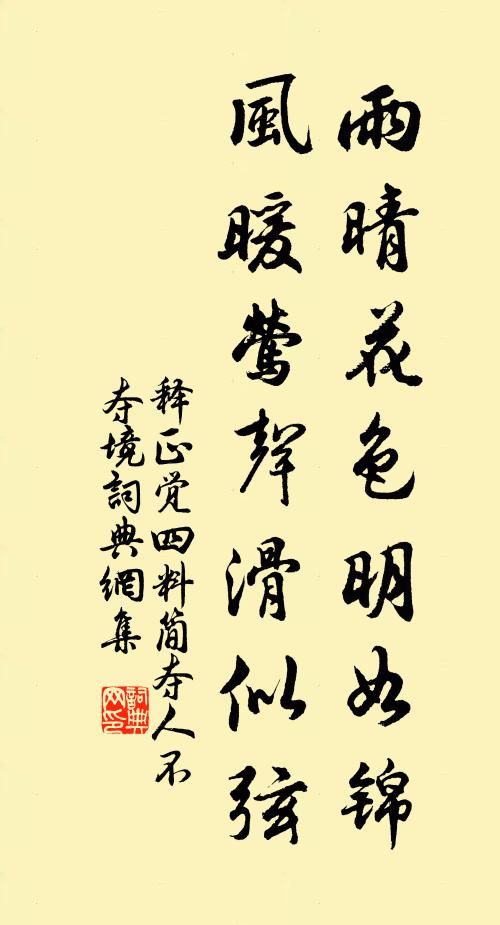 雨晴花色明如锦
風暖鶯聲滑似弦
释正觉四料简夺人不
夺境詞典網集
詞典網印